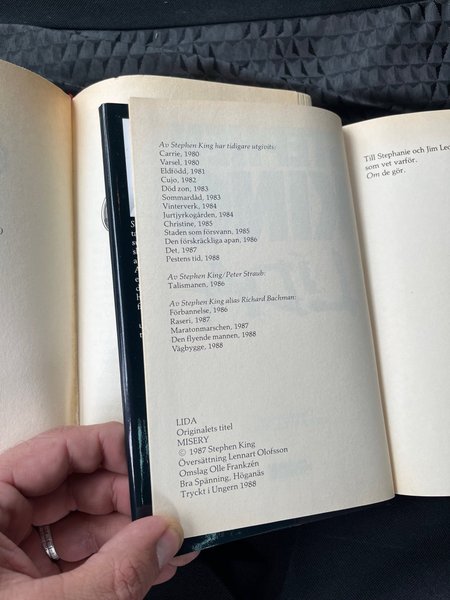 Av Stephen King har tidigare utgivits:
Carrie, 1980
Varsel, 1980
Eldfödd, 1981
Cujo, 1982
Död zon, 1983
Sommardåd, 1983
Vinterverk, 1984
Jurtjyrkogården, 1984
Christine, 1985
Staden som försvann, 1985
Den förskräckliga apan, 1986
Det, 1987
Pestens tid, 1988
Av Stephen King/Peter Straub:
Talismanen, 1986
Av Stephen King alias Richard Bachman:
Förbannelse, 1986
Raseri, 1987
Maratonmarschen, 1987
Den flyende mannen, 1988
Vägbygge, 1988
LIDA
Originalets titel
MISERY
© 1987 Stephen King
Översättning Lennart Olofsson
Omslag Olle Frankzén
Bra Spänning, Höganäs
Tryckt i Ungern 1988
Till Stephanie och Jim
som vet varför.
Om de gör.